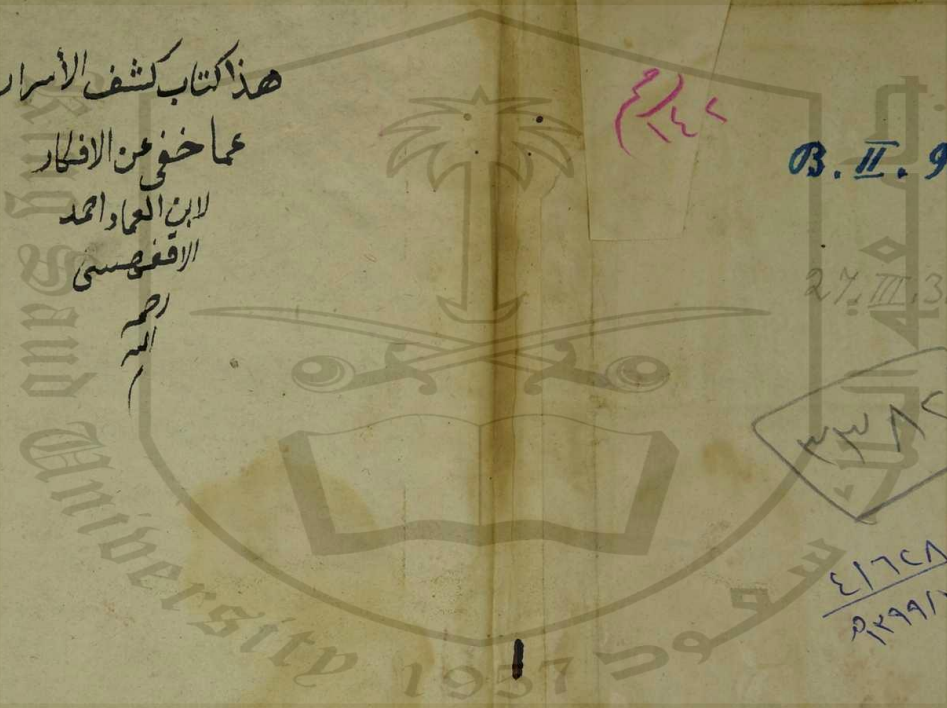 هذا كتاب كشف الأسرار
عما خفى عن الافكار
لابن العماد احمد
الاقفهسى
رحمه
الله
B. II. 9
27. III. 3
٣٣٨٢
٤١٦٢٨
١٣٩٩/
King Saud University
1957
سعود